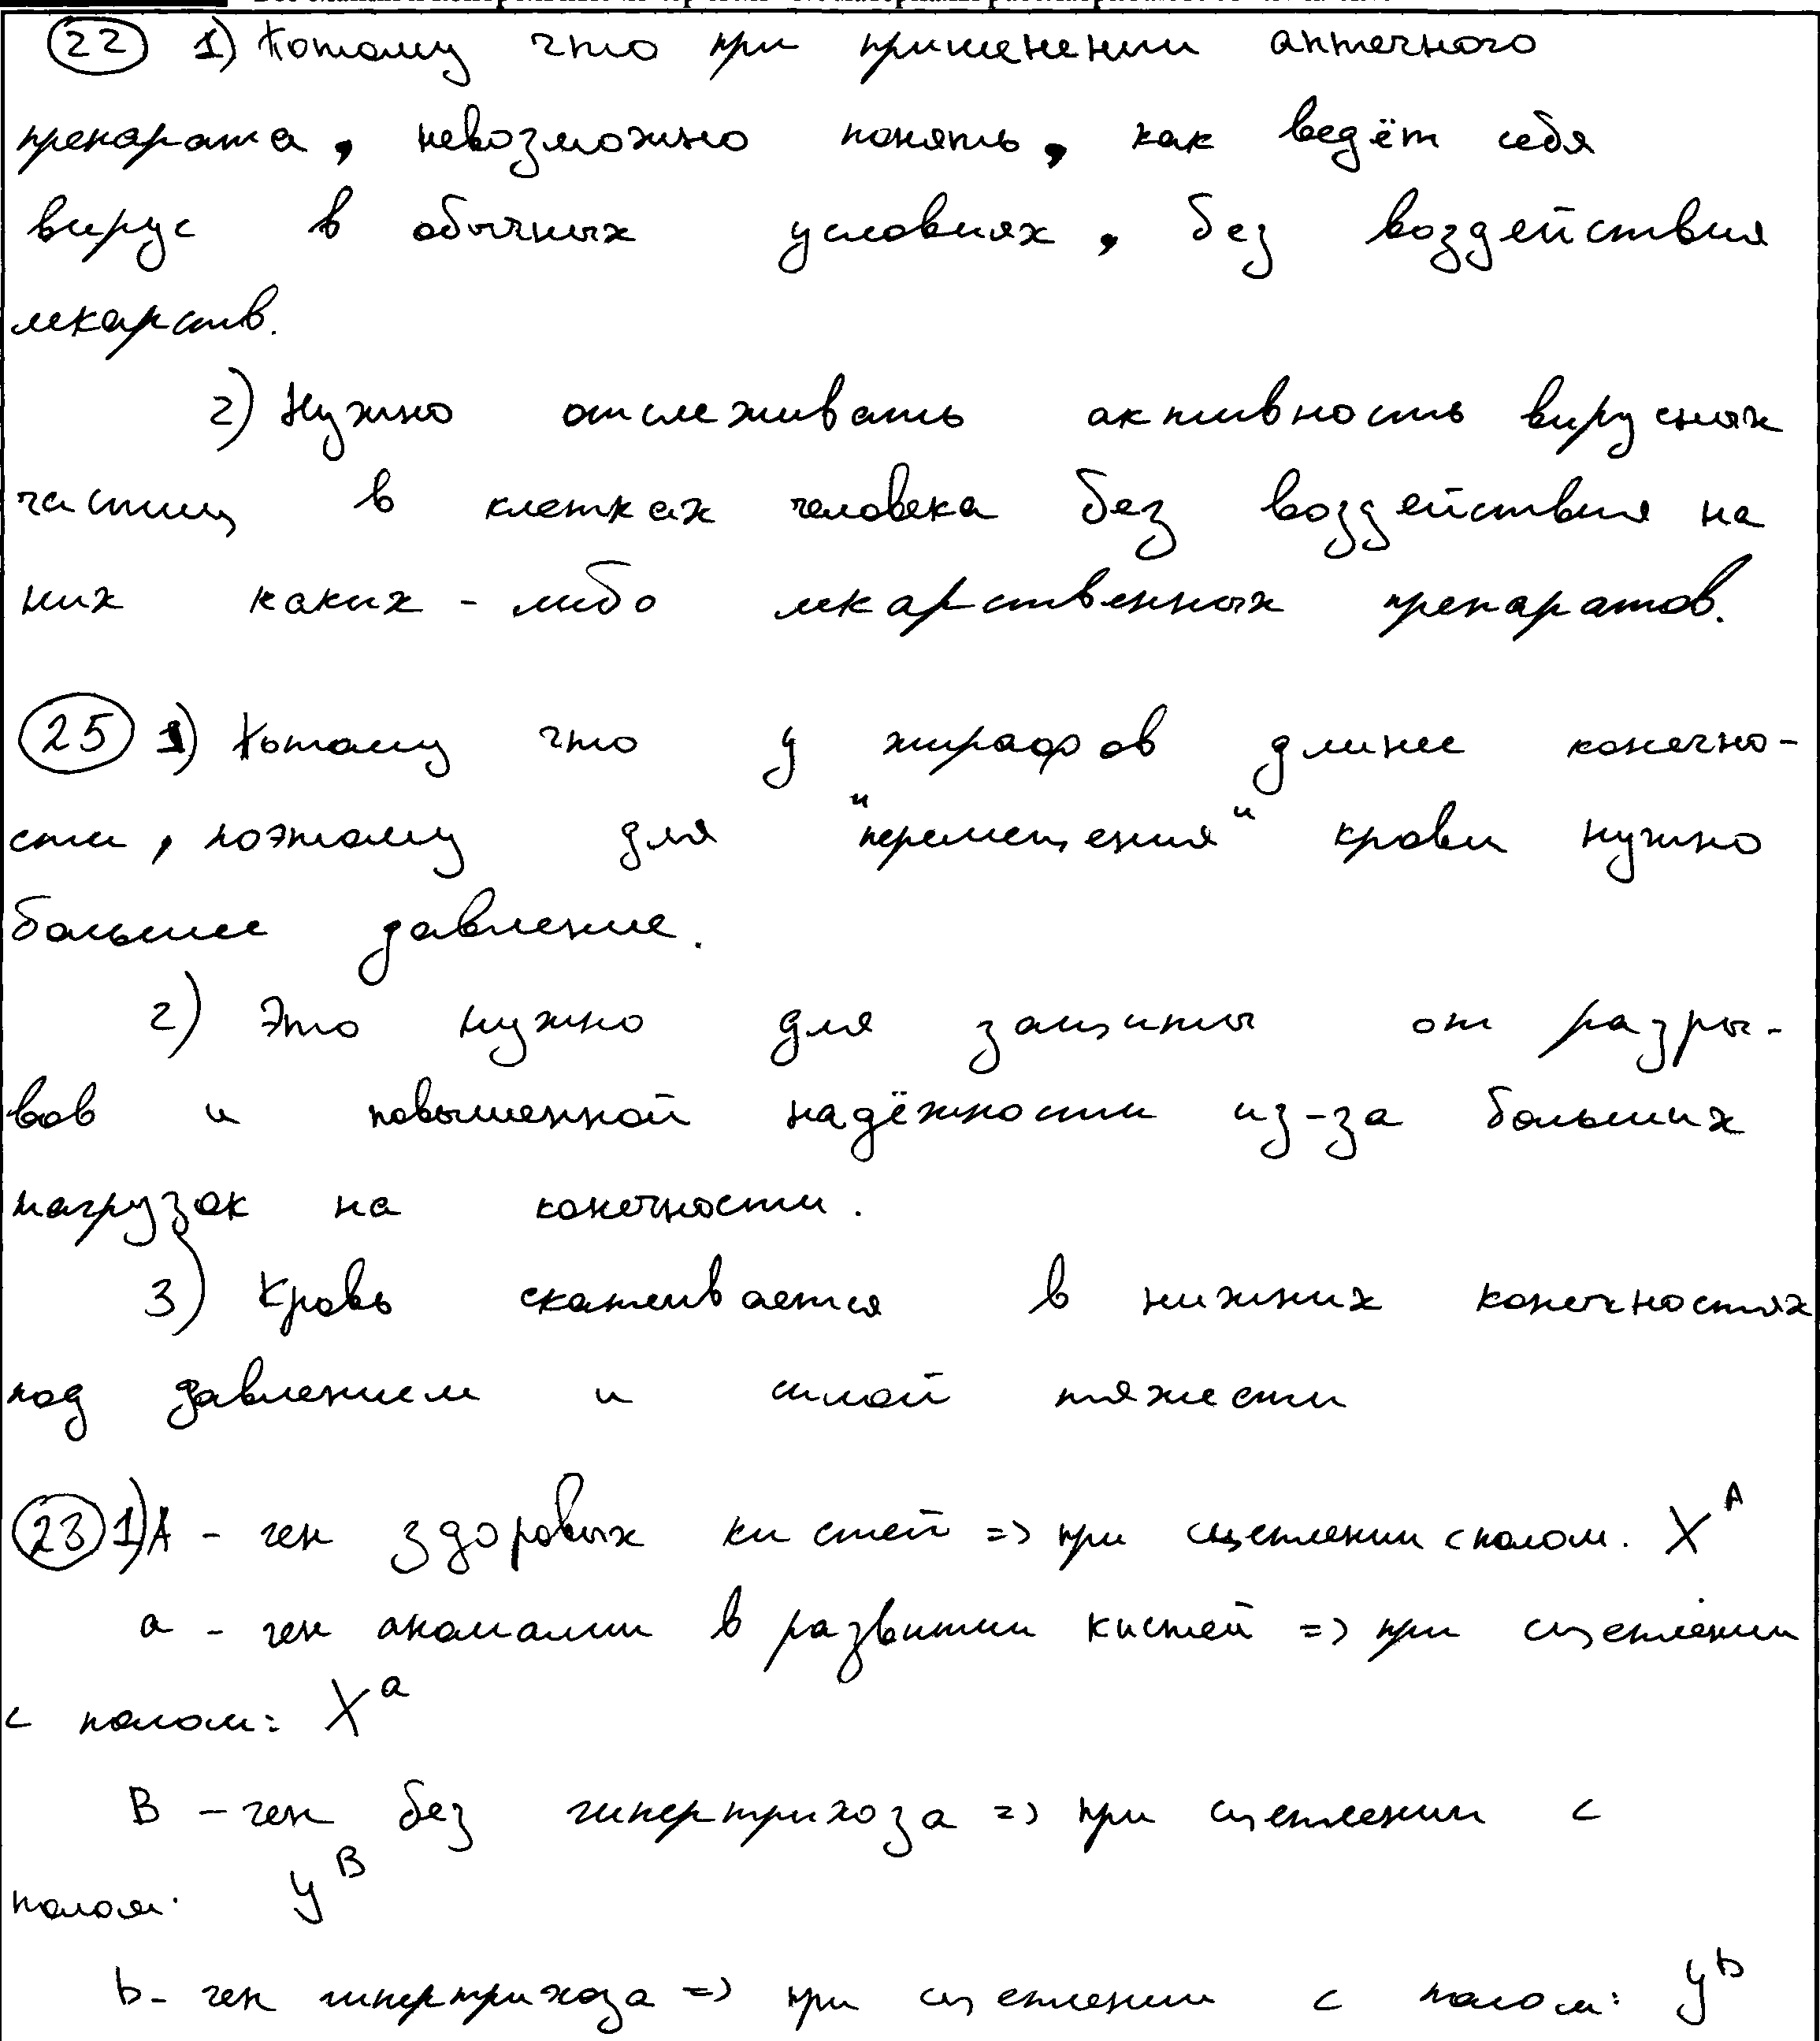 22 1) Потому что при применении аптечного
препарата, невозможно понять, как ведёт себя
вирус в обычных условиях, без воздействия
лекарств.
2) Нужно отслеживать активность вирусных
частиц в клетках человека без воздействия на
них каких-либо лекарственных препаратов.
25 1) Потому что у жирафов длинее конечно-
сти, поэтому для "перемещения" крови нужно
большее давление.
2) Это нужно для защиты от разры-
вов и повышенной надёжности из-за больших
нагрузок на конечности.
3) Кровь скапливается в нижних конечностях
под давлением и силой тяжести
23 1) A - ген здоровых кистей => при сцеплении с полом. X^A
a - ген аномалии в развитии кистей => при сцеплении
с полом: X^a
B - ген без гипертрихоза => при сцеплении с
полом: У^B
b - ген гипертрихоза => при сцеплении с полом: У^b